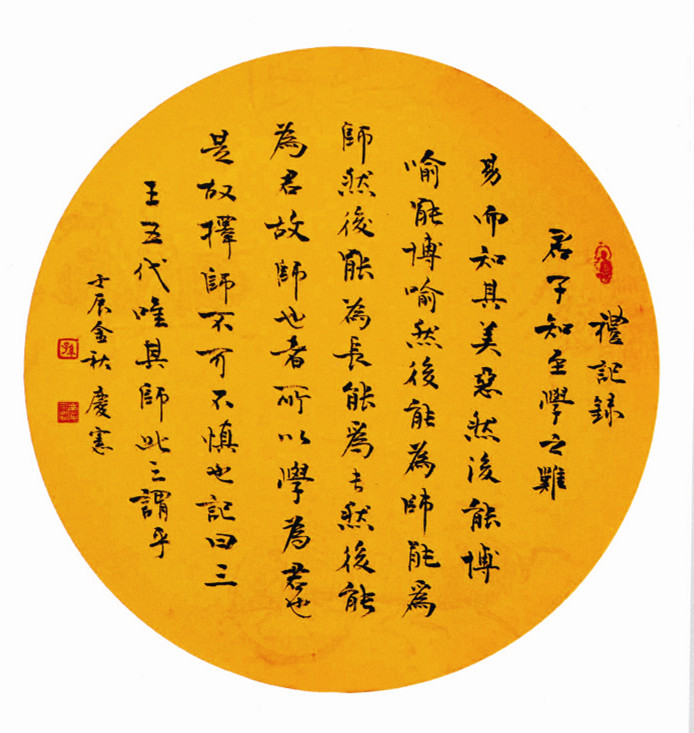 禮記錄
君子知至學之難
易而知其美惡然後能博
喻能博喻然後能為師能為
師然後能為長能為長然後能
為君故師也者所以學為君也
是故擇師不可不慎也記曰三
王五代唯其師此之謂乎
壬辰金秋慶憲